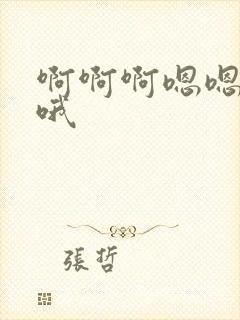 啊啊啊嗯嗯
哦
張哲